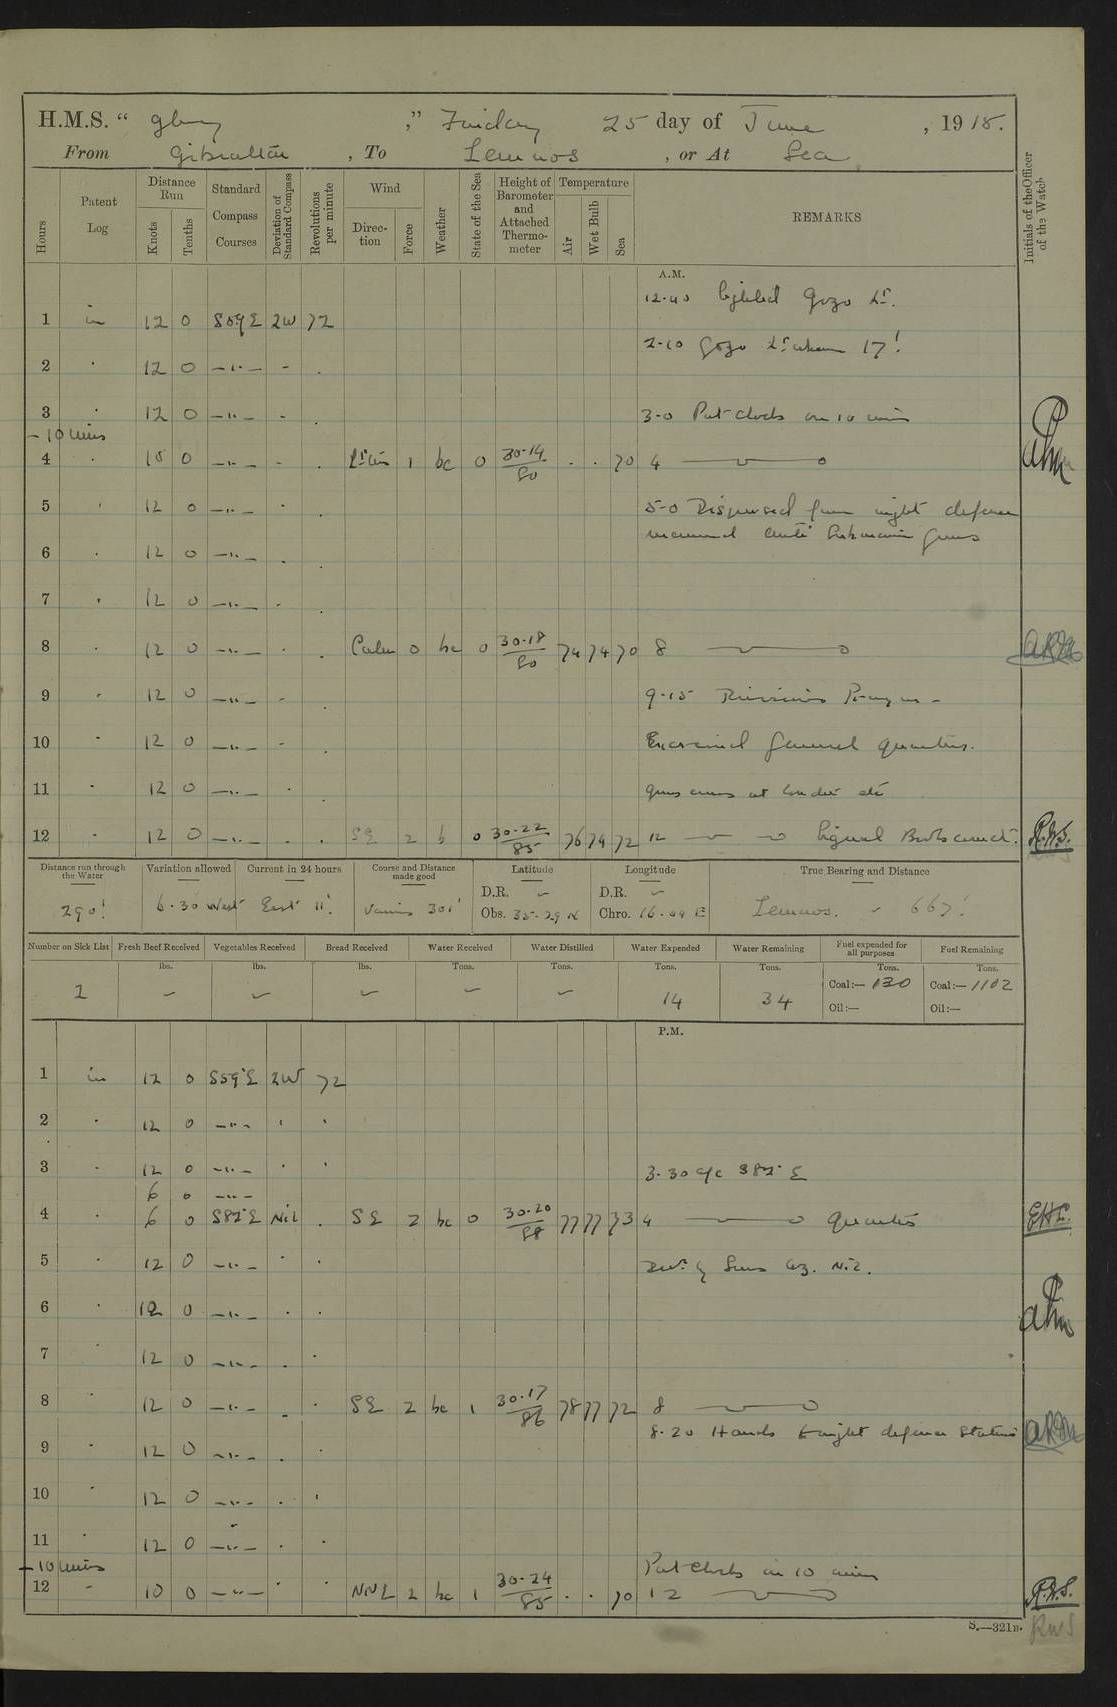 H.M.S. “ Glory ,” Friday 25 day of June , 1915.
From Gibraltar , To Lemnos , or At Sea
Hours
Patent Log
Distance Run
Knots
Tenths
Standard Compass Courses
Deviation of Standard Compass
Revolutions per minute
Wind
Direction
Force
Weather
State of the Sea
Height of Barometer and Attached Thermometer
Temperature
Air
Wet Bulb
Sea
REMARKS
Initials of the Officer of the Watch
A.M.
12.40 Sighted Gozo Lt.
1 in 12 0 S59E 2W 72
2.10 Gozo Lt abeam 17'
2 12 0 —..—
3 12 0 —..— 3-0 Put clocks on 10 mins
- 10 mins
4 10 0 —..— Lt airs 1 bc 0 30.14/80 70 4
5 12 0 —..— 5-0 Dispersed from night defence
manned anti submarine guns
6 12 0 —..—
7 12 0 —..—
8 12 0 —..— Calm 0 bc 0 30.18/80 74 74 70 8
9 12 0 —..— 9.15 Divisions Prayers -
10 12 0 —..— Exercised General quarters.
11 12 0 —..— guns crews at loader etc
12 12 0 —..— SE 2 b 0 30.22/85 76 74 72 12 Signal Boys R.W.S.
Distance run through the Water
290'
Variation allowed
6.30 West
Current in 24 hours
East 11'
Course and Distance made good
Various 301'
Latitude
D.R. —
Obs. 35.29 N
Longitude
D.R. —
Chro. 16.04 E
True Bearing and Distance
Lemnos. - 667'
Number on Sick List Fresh Beef Received Vegetables Received Bread Received Water Received Water Distilled Water Expended Water Remaining Fuel expended for all purposes Fuel Remaining
lbs. lbs. lbs. Tons. Tons. Tons. Tons. Tons. Tons.
2 — — — — — 14 34 Coal:— 130 Coal:— 1102
Oil:— Oil:—
P.M.
1 in 12 0 S59°E 2W 72
2 12 0 —..—
3 12 0 —..— 3.30 a/c S82°E
6 0 —..—
4 6 0 S82°E Nil SE 2 bc 0 30.20/88 77 77 73 4 Quarters
5 12 0 —..— Devn by Suns Az. Nil.
6 12 0 —..—
7 12 0 —..—
8 12 0 —..— SE 2 bc 1 30.17/86 78 77 72 8
8.20 Hands to night defence stations
9 12 0 —..—
10 12 0 —..—
11 12 0 —..—
- 10 mins Put clocks on 10 mins
12 10 0 —..— NNE 2 bc 1 30.24/85 70 12 R.W.S.
S.—321B.
RWS